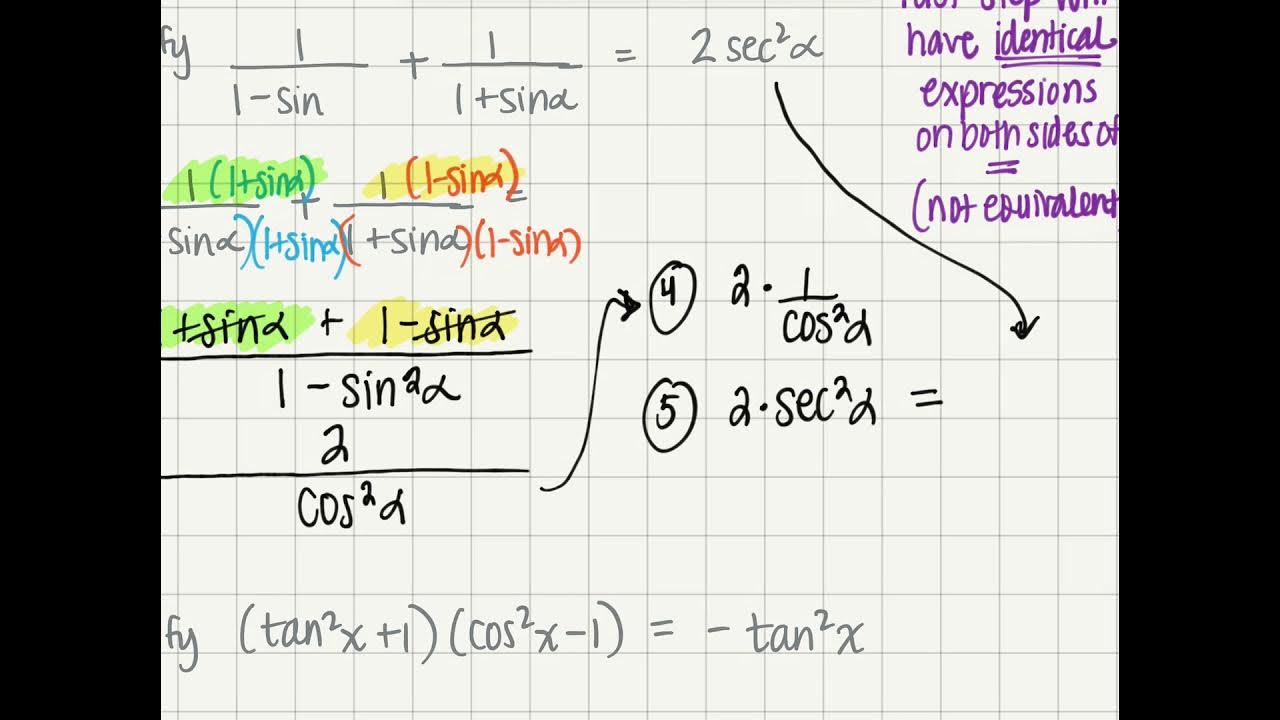 fy 1/(1-sin) + 1/(1+sinα) = 2 sec²α
have identical
expressions
on both sides of
=
(not equivalent
1(1+sinα) + 1(1-sinα) =
sinα)(1+sinα)(1+sinα)(1-sinα)
+sinα + 1-sinα
1 - sin²α
2
cos²α
④ 2 · 1/cos²α
⑤ 2 · sec²α =
fy (tan²x+1)(cos²x-1) = -tan²x